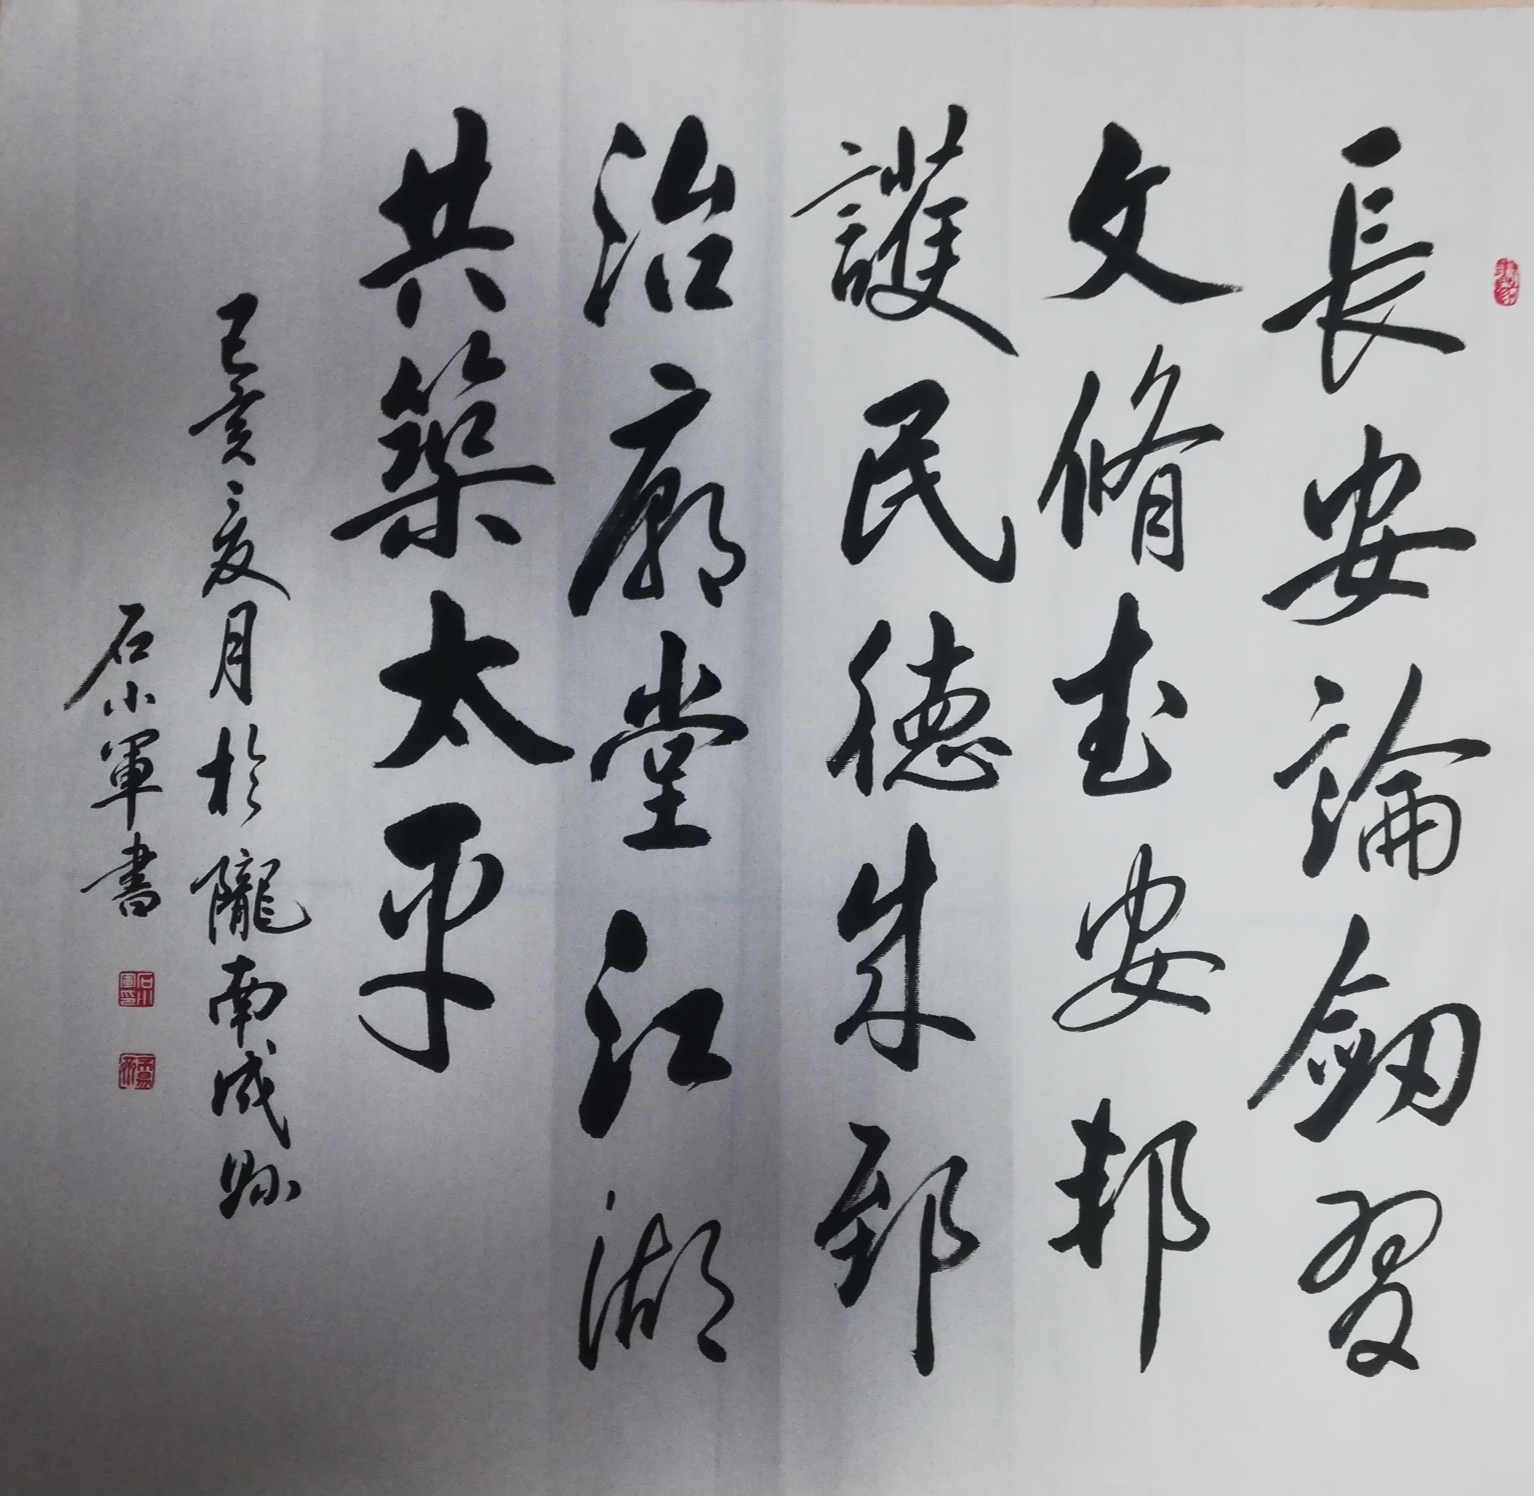 長安論劒習
文脩武安邦
護民德朱郅
治廟堂江湖
共築太平
己亥夏月於隴南成縣
石小軍書